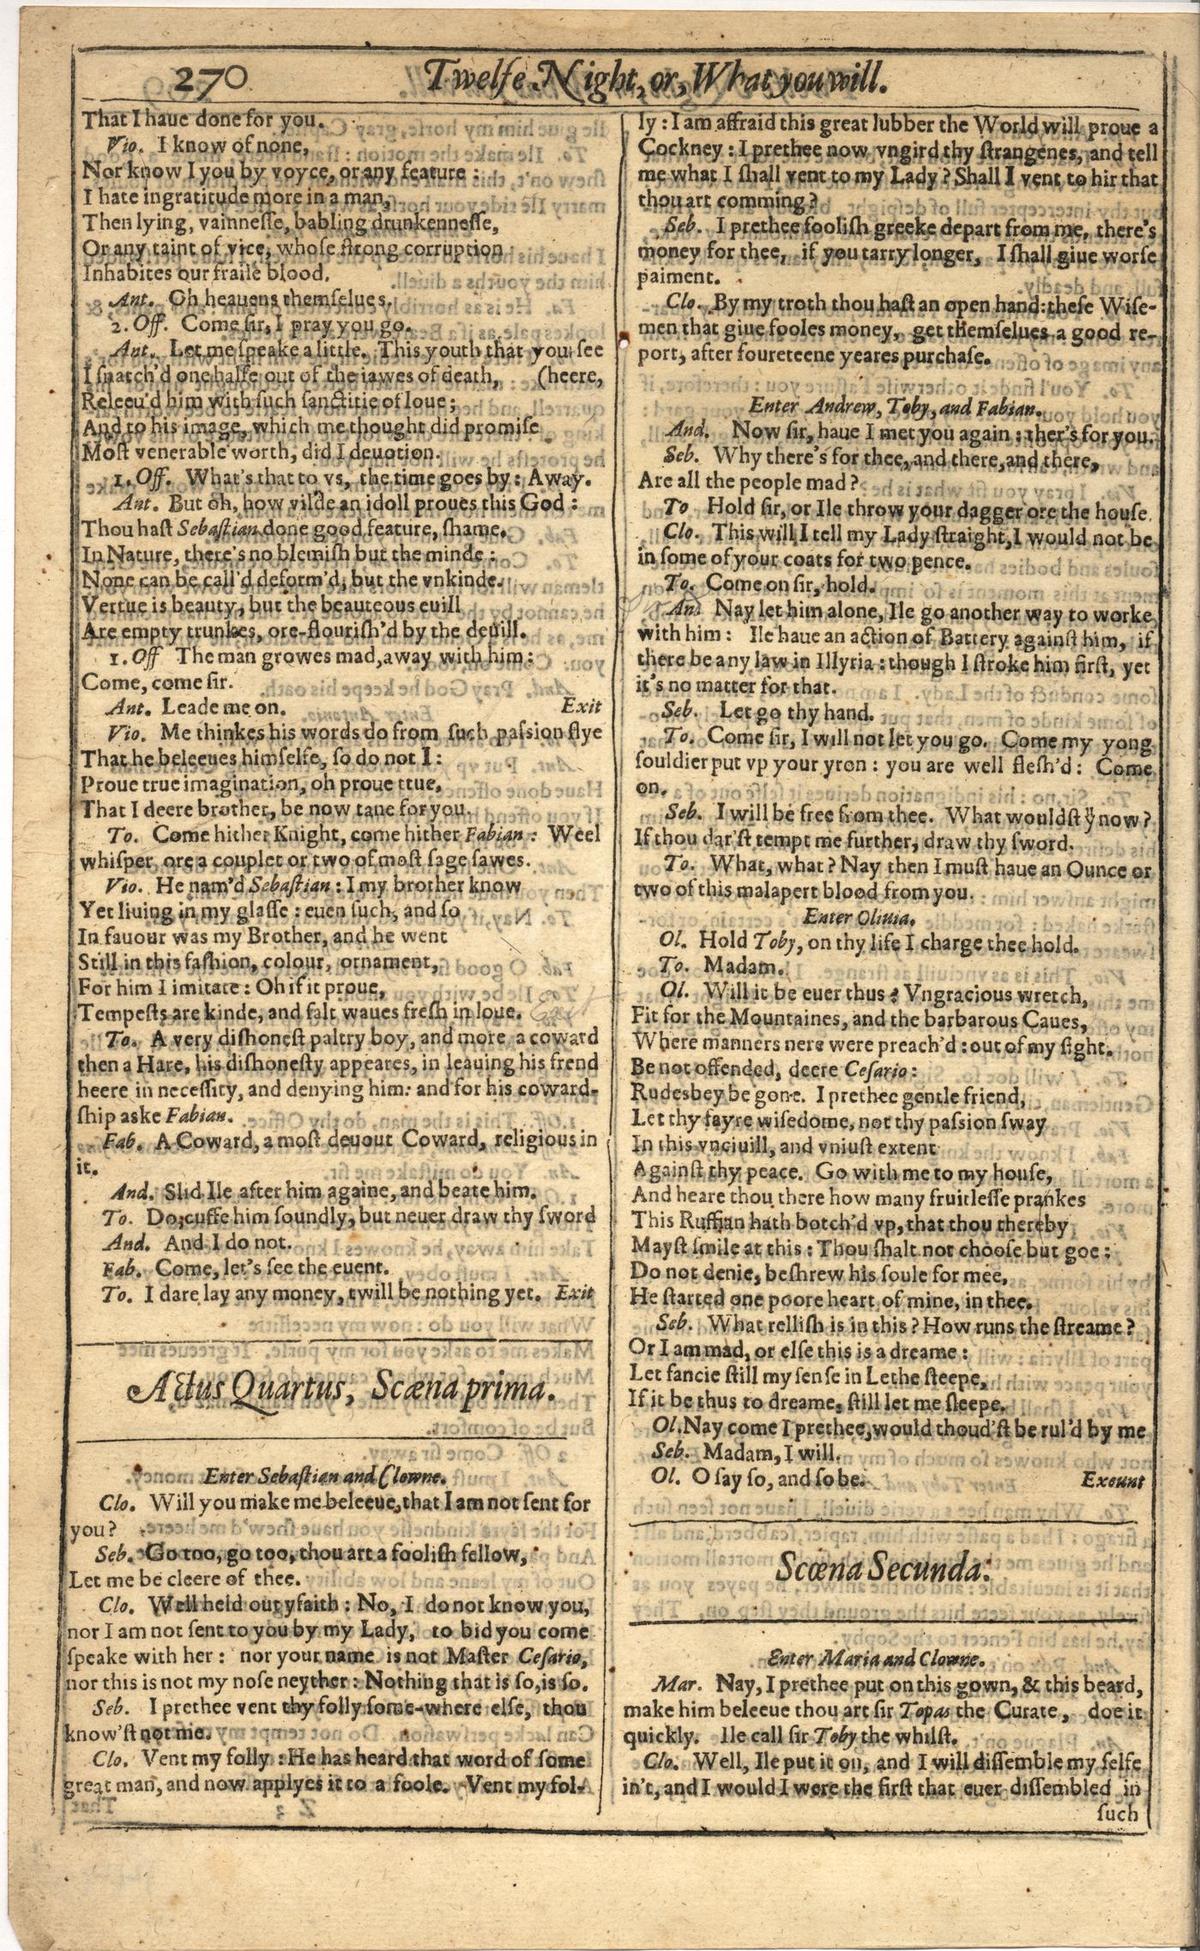 270
Twelfe Night, or, What you will.
That I haue done for you.
Vio. I know of none,
Nor know I you by voyce, or any feature :
I hate ingratitude more in a man,
Then lying, vainnesse, babling drunkennesse,
Or any taint of vice, whose strong corruption
Inhabites our fraile blood.
Ant. Oh heauens themselues.
2. Off. Come sir, I pray you go.
Ant. Let me speake a little. This youth that you see
I snatch'd one halfe out of the iawes of death, (heere,
Releeu'd him with such sanctitie of loue ;
And to his image, which me thought did promise
Most venerable worth, did I deuotion.
1. Off. What's that to vs, the time goes by : Away.
Ant. But oh, how vilde an idoll proues this God :
Thou hast Sebastian done good feature, shame.
In Nature, there's no blemish but the minde :
None can be call'd deform'd, but the vnkinde.
Vertue is beauty, but the beauteous euill
Are empty trunkes, ore-flourish'd by the deuill.
1. Off The man growes mad, away with him :
Come, come sir.
Ant. Leade me on. Exit
Vio. Me thinkes his words do from such passion flye
That he beleeues himselfe, so do not I :
Proue true imagination, oh proue ttue,
That I deere brother, be now tane for you.
To. Come hither Knight, come hither Fabian : Weel
whisper ore a couplet or two of most sage sawes.
Vio. He nam'd Sebastian : I my brother know
Yet liuing in my glasse : euen such, and so
In fauour was my Brother, and he went
Still in this fashion, colour, ornament,
For him I imitate : Oh if it proue,
Tempests are kinde, and salt waues fresh in loue.
To. A very dishonest paltry boy, and more a coward
then a Hare, his dishonesty appeares, in leauing his frend
heere in necessity, and denying him: and for his coward-
ship aske Fabian.
Fab. A Coward, a most deuout Coward, religious in
it.
And. Slid Ile after him againe, and beate him.
To. Do, cuffe him soundly, but neuer draw thy sword
And. And I do not.
Fab. Come, let's see the euent.
To. I dare lay any money, twill be nothing yet. Exit
Actus Quartus, Scæna prima.
Enter Sebastian and Clowne.
Clo. Will you make me beleeue, that I am not sent for
you?
Seb. Go too, go too, thou art a foolish fellow,
Let me be cleere of thee.
Clo. Well held out yfaith : No, I do not know you,
nor I am not sent to you by my Lady, to bid you come
speake with her : nor your name is not Master Cesario,
nor this is not my nose neyther : Nothing that is so, is so.
Seb. I prethee vent thy folly some-where else, thou
know'st not me.
Clo. Vent my folly : He has heard that word of some
great man, and now applyes it to a foole. Vent my fol-
ly : I am affraid this great lubber the World will proue a
Cockney : I prethee now vngird thy strangenes, and tell
me what I shall vent to my Lady ? Shall I vent to hir that
thou art comming ?
Seb. I prethee foolish greeke depart from me, there's
money for thee, if you tarry longer, I shall giue worse
paiment.
Clo. By my troth thou hast an open hand : these Wise-
men that giue fooles money, get themselues a good re-
port, after foureteene yeares purchase.
Enter Andrew, Toby, and Fabian.
And. Now sir, haue I met you again : ther's for you.
Seb. Why there's for thee, and there, and there,
Are all the people mad ?
To Hold sir, or Ile throw your dagger ore the house
Clo. This will I tell my Lady straight, I would not be
in some of your coats for two pence.
To. Come on sir, hold.
An. Nay let him alone, Ile go another way to worke
with him : Ile haue an action of Battery against him, if
there be any law in Illyria : though I stroke him first, yet
it's no matter for that.
Seb. Let go thy hand.
To. Come sir, I will not let you go. Come my yong
souldier put vp your yron : you are well flesh'd : Come
on.
Seb. I will be free from thee. What wouldst yͧ now?
If thou dar'st tempt me further, draw thy sword.
To. What, what ? Nay then I must haue an Ounce or
two of this malapert blood from you.
Enter Oliuia.
Ol. Hold Toby, on thy life I charge thee hold.
To. Madam.
Ol. Will it be euer thus ? Vngracious wretch,
Fit for the Mountaines, and the barbarous Caues,
Where manners nere were preach'd : out of my sight.
Be not offended, deere Cesario :
Rudesbey be gone. I prethee gentle friend,
Let thy fayre wisedome, not thy passion sway
In this vnciuill, and vniust extent
Against thy peace. Go with me to my house,
And heare thou there how many fruitlesse prankes
This Ruffian hath botch'd vp, that thou thereby
Mayst smile at this : Thou shalt not choose but goe :
Do not denie, beshrew his soule for mee,
He started one poore heart of mine, in thee.
Seb. What rellish is in this ? How runs the streame ?
Or I am mad, or else this is a dreame :
Let fancie still my sense in Lethe steepe,
If it be thus to dreame, still let me sleepe.
Ol. Nay come I prethee, would thoud'st be rul'd by me
Seb. Madam, I will.
Ol. O say so, and so be. Exeunt
Scœna Secunda.
Enter Maria and Clowne.
Mar. Nay, I prethee put on this gown, & this beard,
make him beleeue thou art sir Topas the Curate, doe it
quickly. Ile call sir Toby the whilst.
Clo. Well, Ile put it on, and I will dissemble my selfe
in't, and I would I were the first that euer dissembled in
such